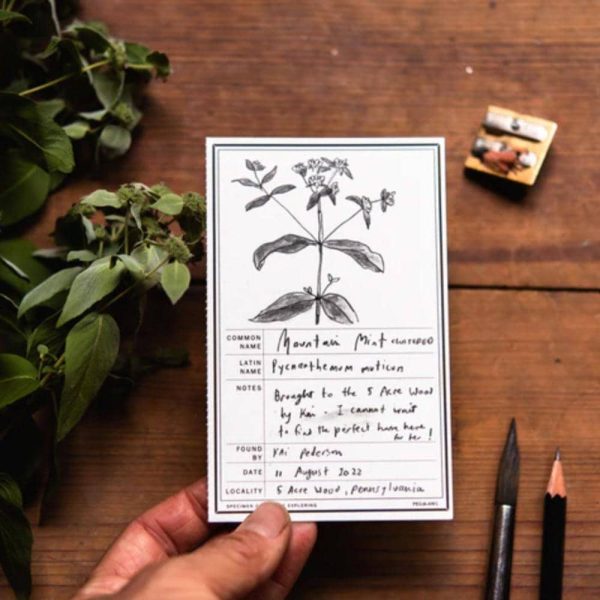 COMMON NAME Mountain Mint CLUSTERED
LATIN NAME Pycnanthemum muticum
NOTES Brought to the 5 Acre Wood
by Kai - I cannot wait
to find the perfect home here
for her!
FOUND BY Kai Pederson
DATE 11 August 2022
LOCALITY 5 Acre Wood, Pennsylvania
SPECIMEN EXPLORING